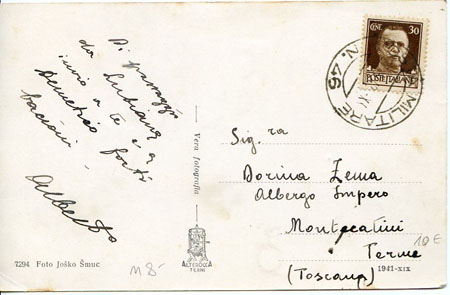 Di passaggio
da Lubiana
invio a te e a
Demetrio forti
bacioni -
Alberto
Vera fotografia
7294 Foto Joško Šmuc
ALTEROCCA
TERNI
M 8-
CENT. 30
POSTE ITALIANE
MILITARE N. 46
Sig. ra
Dorina Zema
Albergo Impero
Montecatini
Terme
(Toscana)
10 €
1941-XIX